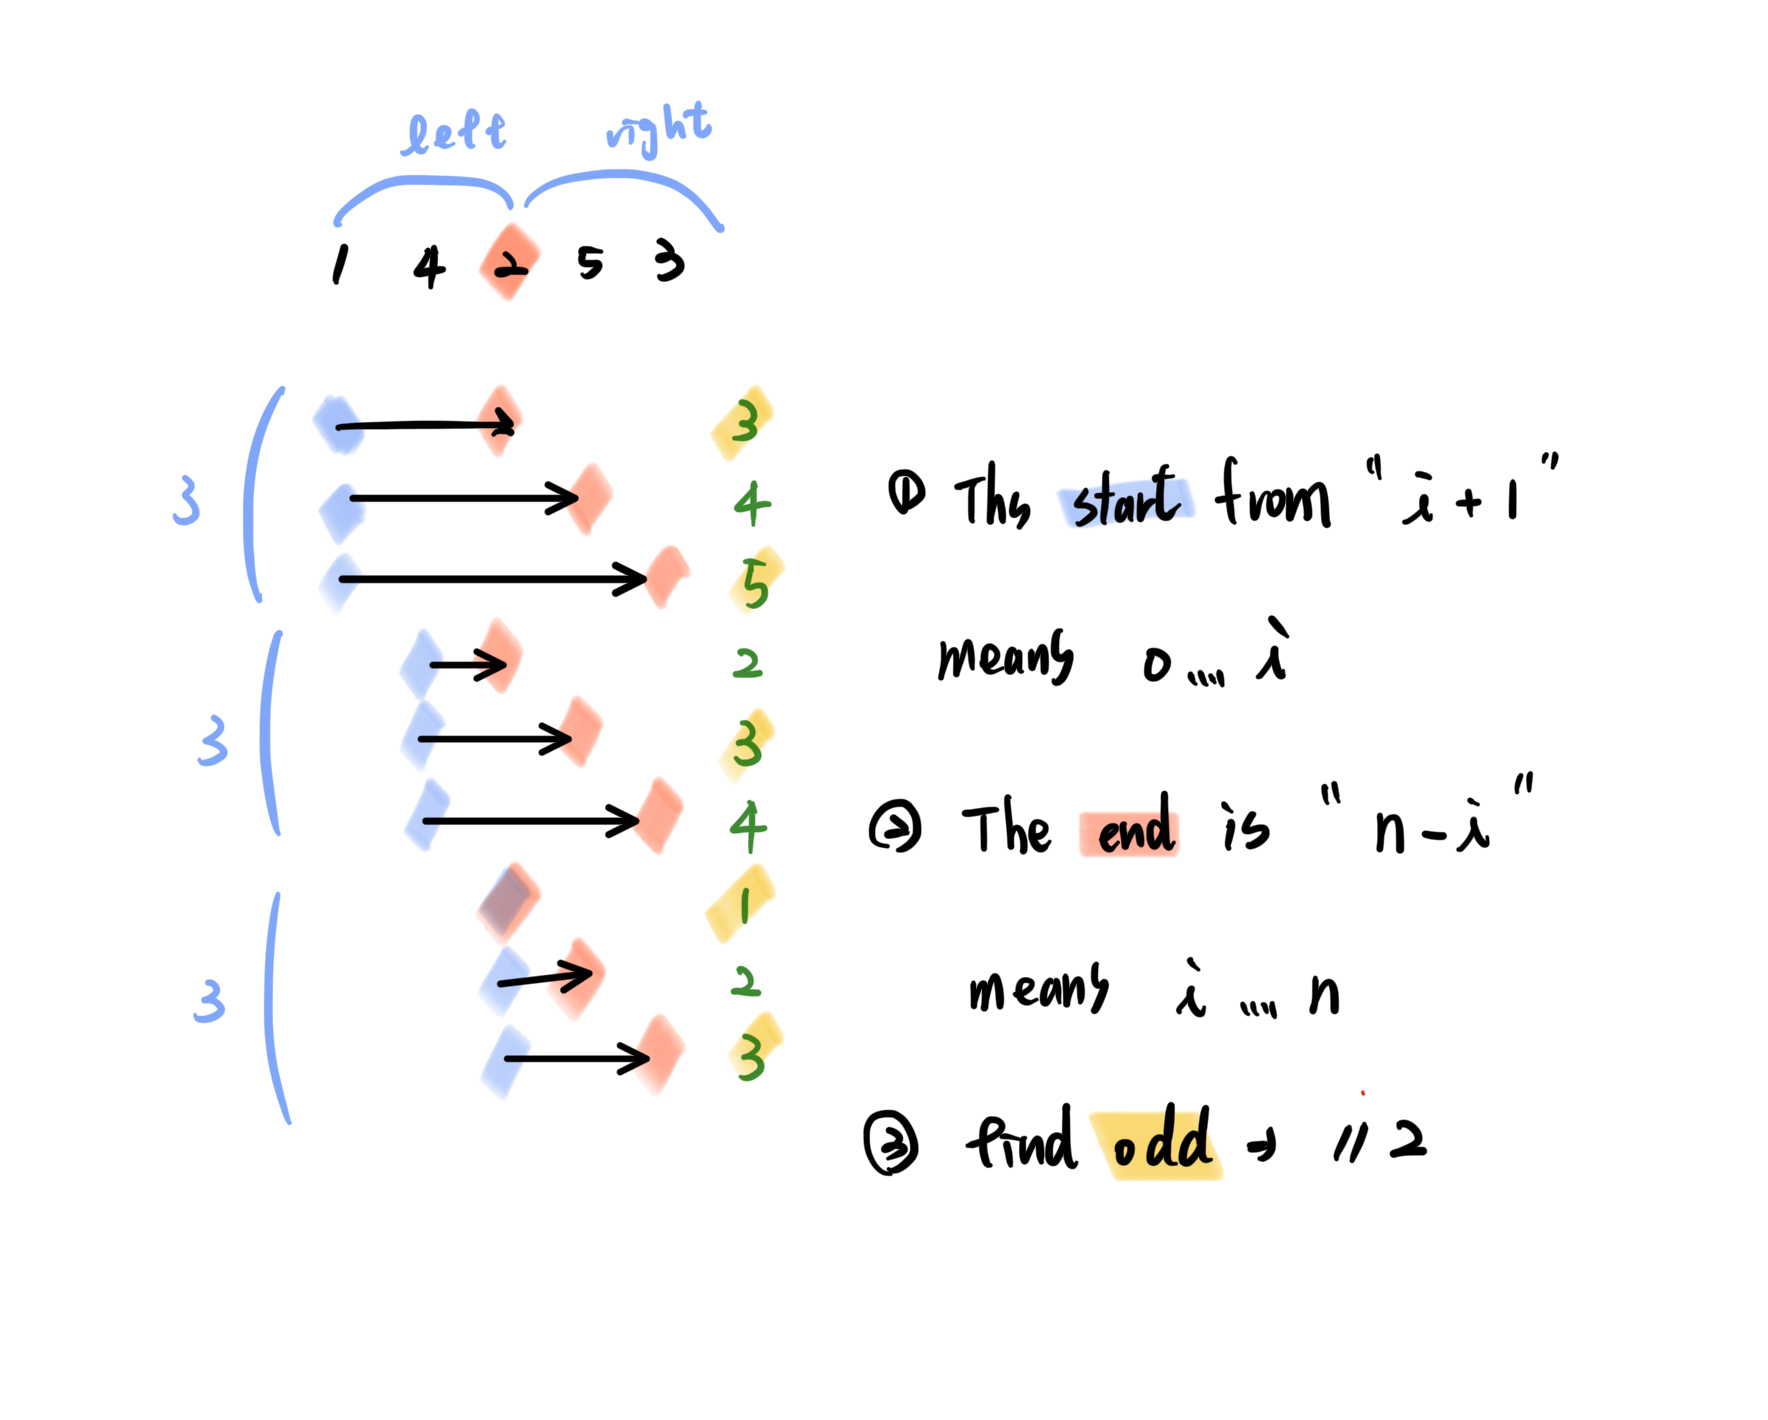 left right
1 4 2 5 3
3
4
3
5
2
3
3
4
1
2
3
3
① The start from "i+1"
means 0.... i
② The end is "n-i"
means i .... n
③ find odd → //2